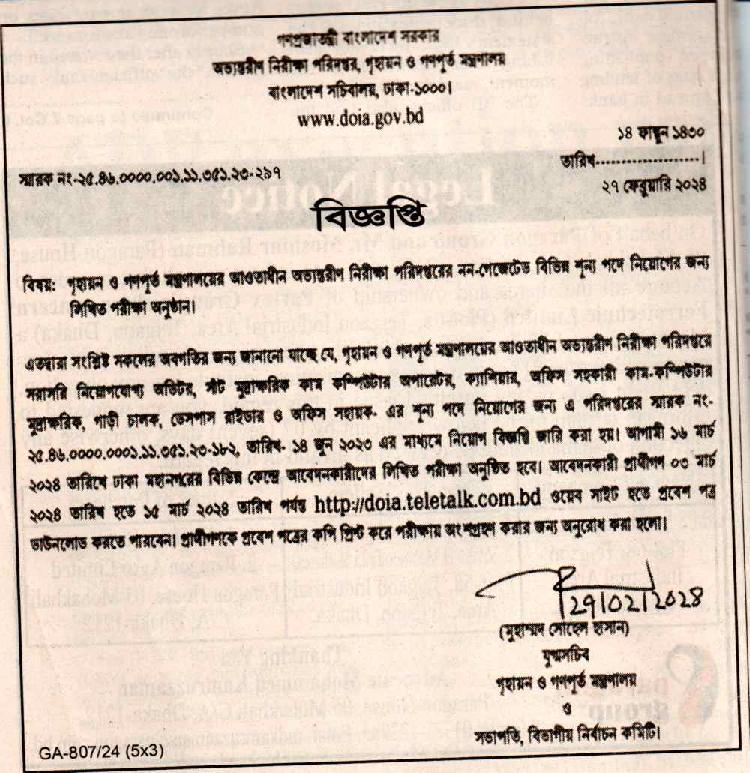 গণপ্রজাতন্ত্রী বাংলাদেশ সরকার
অভ্যন্তরীণ নিরীক্ষা পরিদপ্তর, গৃহায়ন ও গণপূর্ত মন্ত্রণালয়
বাংলাদেশ সচিবালয়, ঢাকা-১০০০।
www.doia.gov.bd
স্মারক নং-২৫.৪৬.০০০০.০০১.১১.৩৫১.২৩-২৯৭
১৪ ফাল্গুন ১৪৩০
তারিখ.....................।
২৭ ফেব্রুয়ারি ২০২৪
বিজ্ঞপ্তি
বিষয়: গৃহায়ন ও গণপূর্ত মন্ত্রণালয়ের আওতাধীন অভ্যন্তরীণ নিরীক্ষা পরিদপ্তরের নন-গেজেটেড বিভিন্ন শূন্য পদে নিয়োগের জন্য
লিখিত পরীক্ষা অনুষ্ঠান।
এতদ্বারা সংশ্লিষ্ট সকলের অবগতির জন্য জানানো যাচ্ছে যে, গৃহায়ন ও গণপূর্ত মন্ত্রণালয়ের আওতাধীন অভ্যন্তরীণ নিরীক্ষা পরিদপ্তরে
সরাসরি নিয়োগযোগ্য অডিটর, সাঁট মুদ্রাক্ষরিক কাম কম্পিউটার অপারেটর, ক্যাশিয়ার, অফিস সহকারী কাম-কম্পিউটার
মুদ্রাক্ষরিক, গাড়ী চালক, ডেসপাস রাইডার ও অফিস সহায়ক- এর শূন্য পদে নিয়োগের জন্য এ পরিদপ্তরের স্মারক নং-
২৫.৪৬.০০০০.০০০১.১১.৩৫১.২৩-১৮২, তারিখ- ১৪ জুন ২০২৩ এর মাধ্যমে নিয়োগ বিজ্ঞপ্তি জারি করা হয়। আগামী ১৬ মার্চ
২০২৪ তারিখে ঢাকা মহানগরের বিভিন্ন কেন্দ্রে আবেদনকারীদের লিখিত পরীক্ষা অনুষ্ঠিত হবে। আবেদনকারী প্রার্থীগণ ০৩ মার্চ
২০২৪ তারিখ হতে ১৫ মার্চ ২০২৪ তারিখ পর্যন্ত http://doia.teletalk.com.bd ওয়েব সাইট হতে প্রবেশ পত্র
ডাউনলোড করতে পারবেন। প্রার্থীগণকে প্রবেশ পত্রের কপি প্রিন্ট করে পরীক্ষায় অংশগ্রহণ করার জন্য অনুরোধ করা হলো।
29/02/২০২৪
(মুহাম্মদ সোহেল হাসান)
যুগ্মসচিব
গৃহায়ন ও গণপূর্ত মন্ত্রণালয়
ও
সভাপতি, বিভাগীয় নির্বাচন কমিটি।
GA-807/24 (5x3)